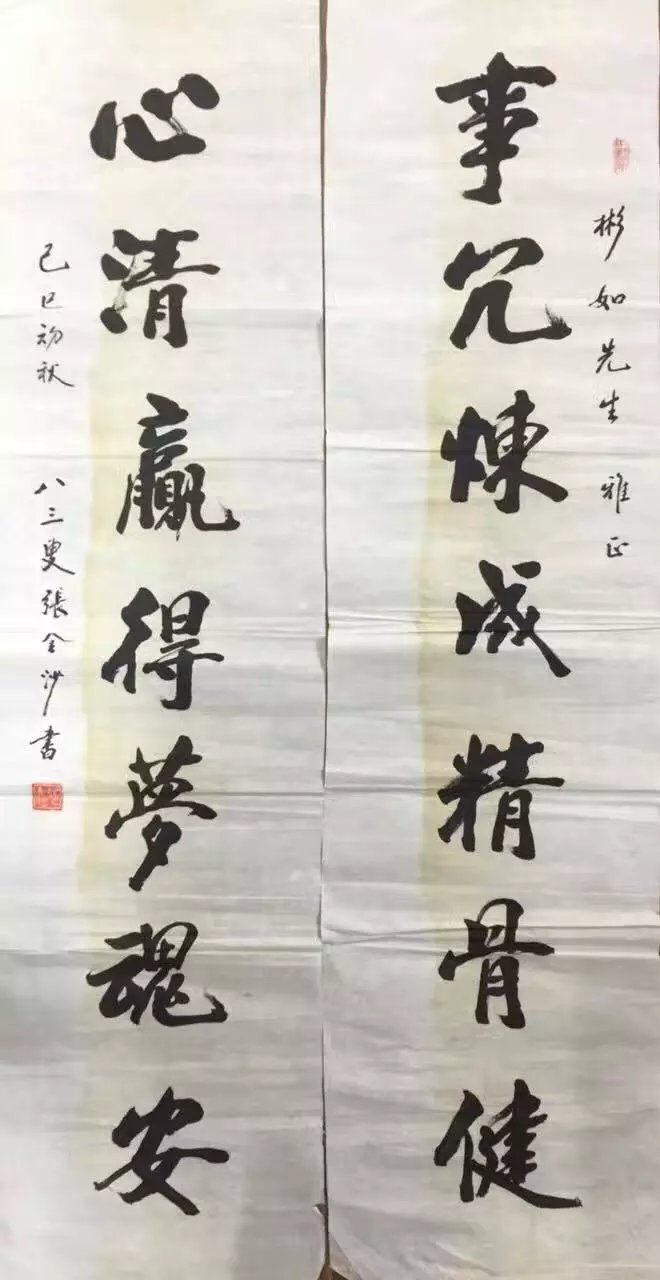 彬如先生 雅正
事冗煉成精骨健
心清贏得夢魂安
己巳初秋 八三叟張金沙書